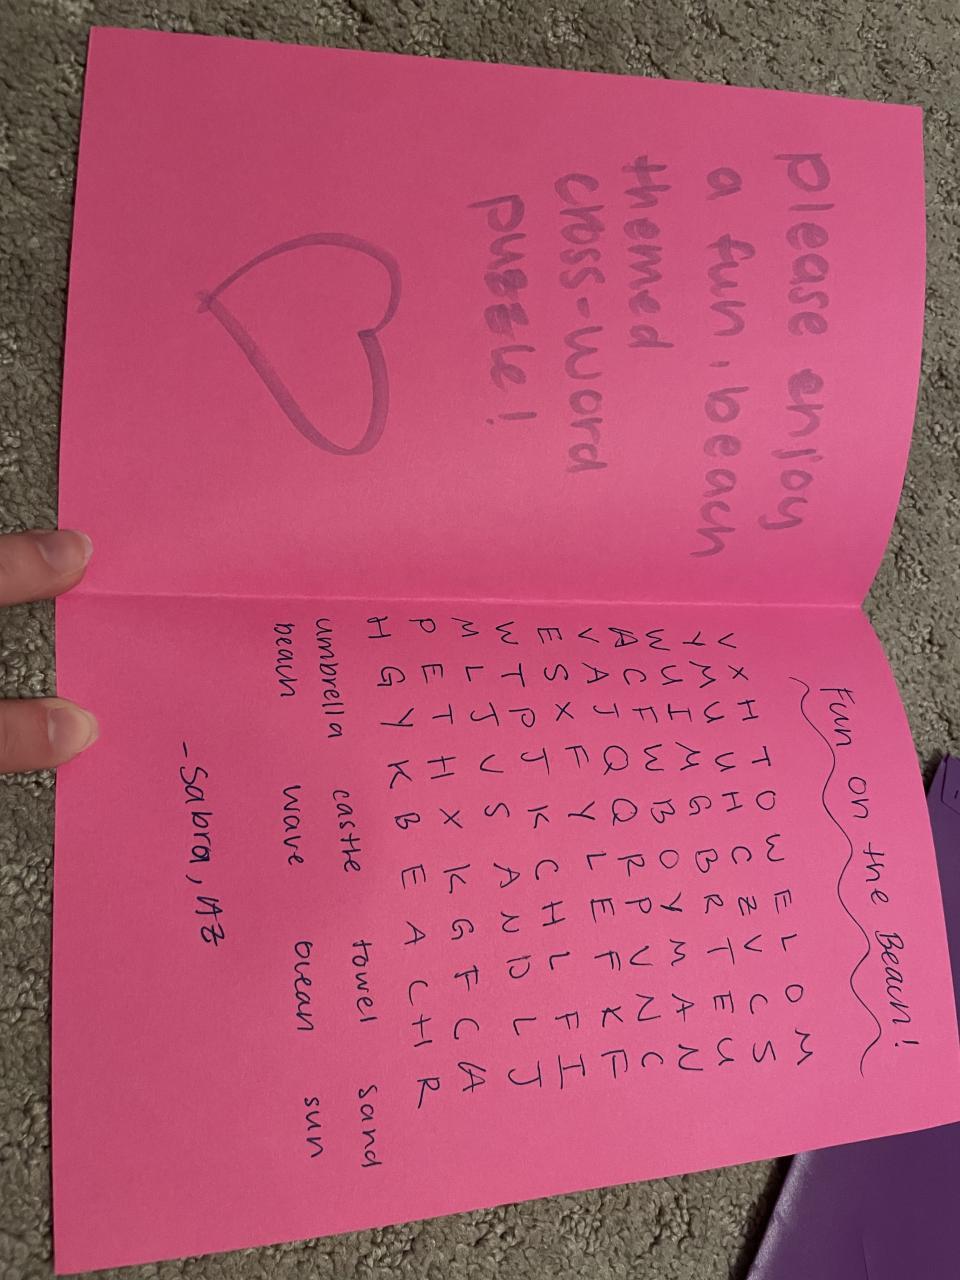 please enjoy
a fun, beach
themed
cross-word
puzzle!
Fun on the Beach!
V X H T O W E L O M
Y M U U H C Z V C S
W U I M G B R T E U
A C F W B O Y M A N
V A J Q Q R P V N C
E S X F Y L E F K F
W T P J K C H L F I
M L J V S A N D L J
P E T H X K G F C A
H G Y K B E A C H R
umbrella castle towel sand
beach wave ocean sun
-Sabra, AZ